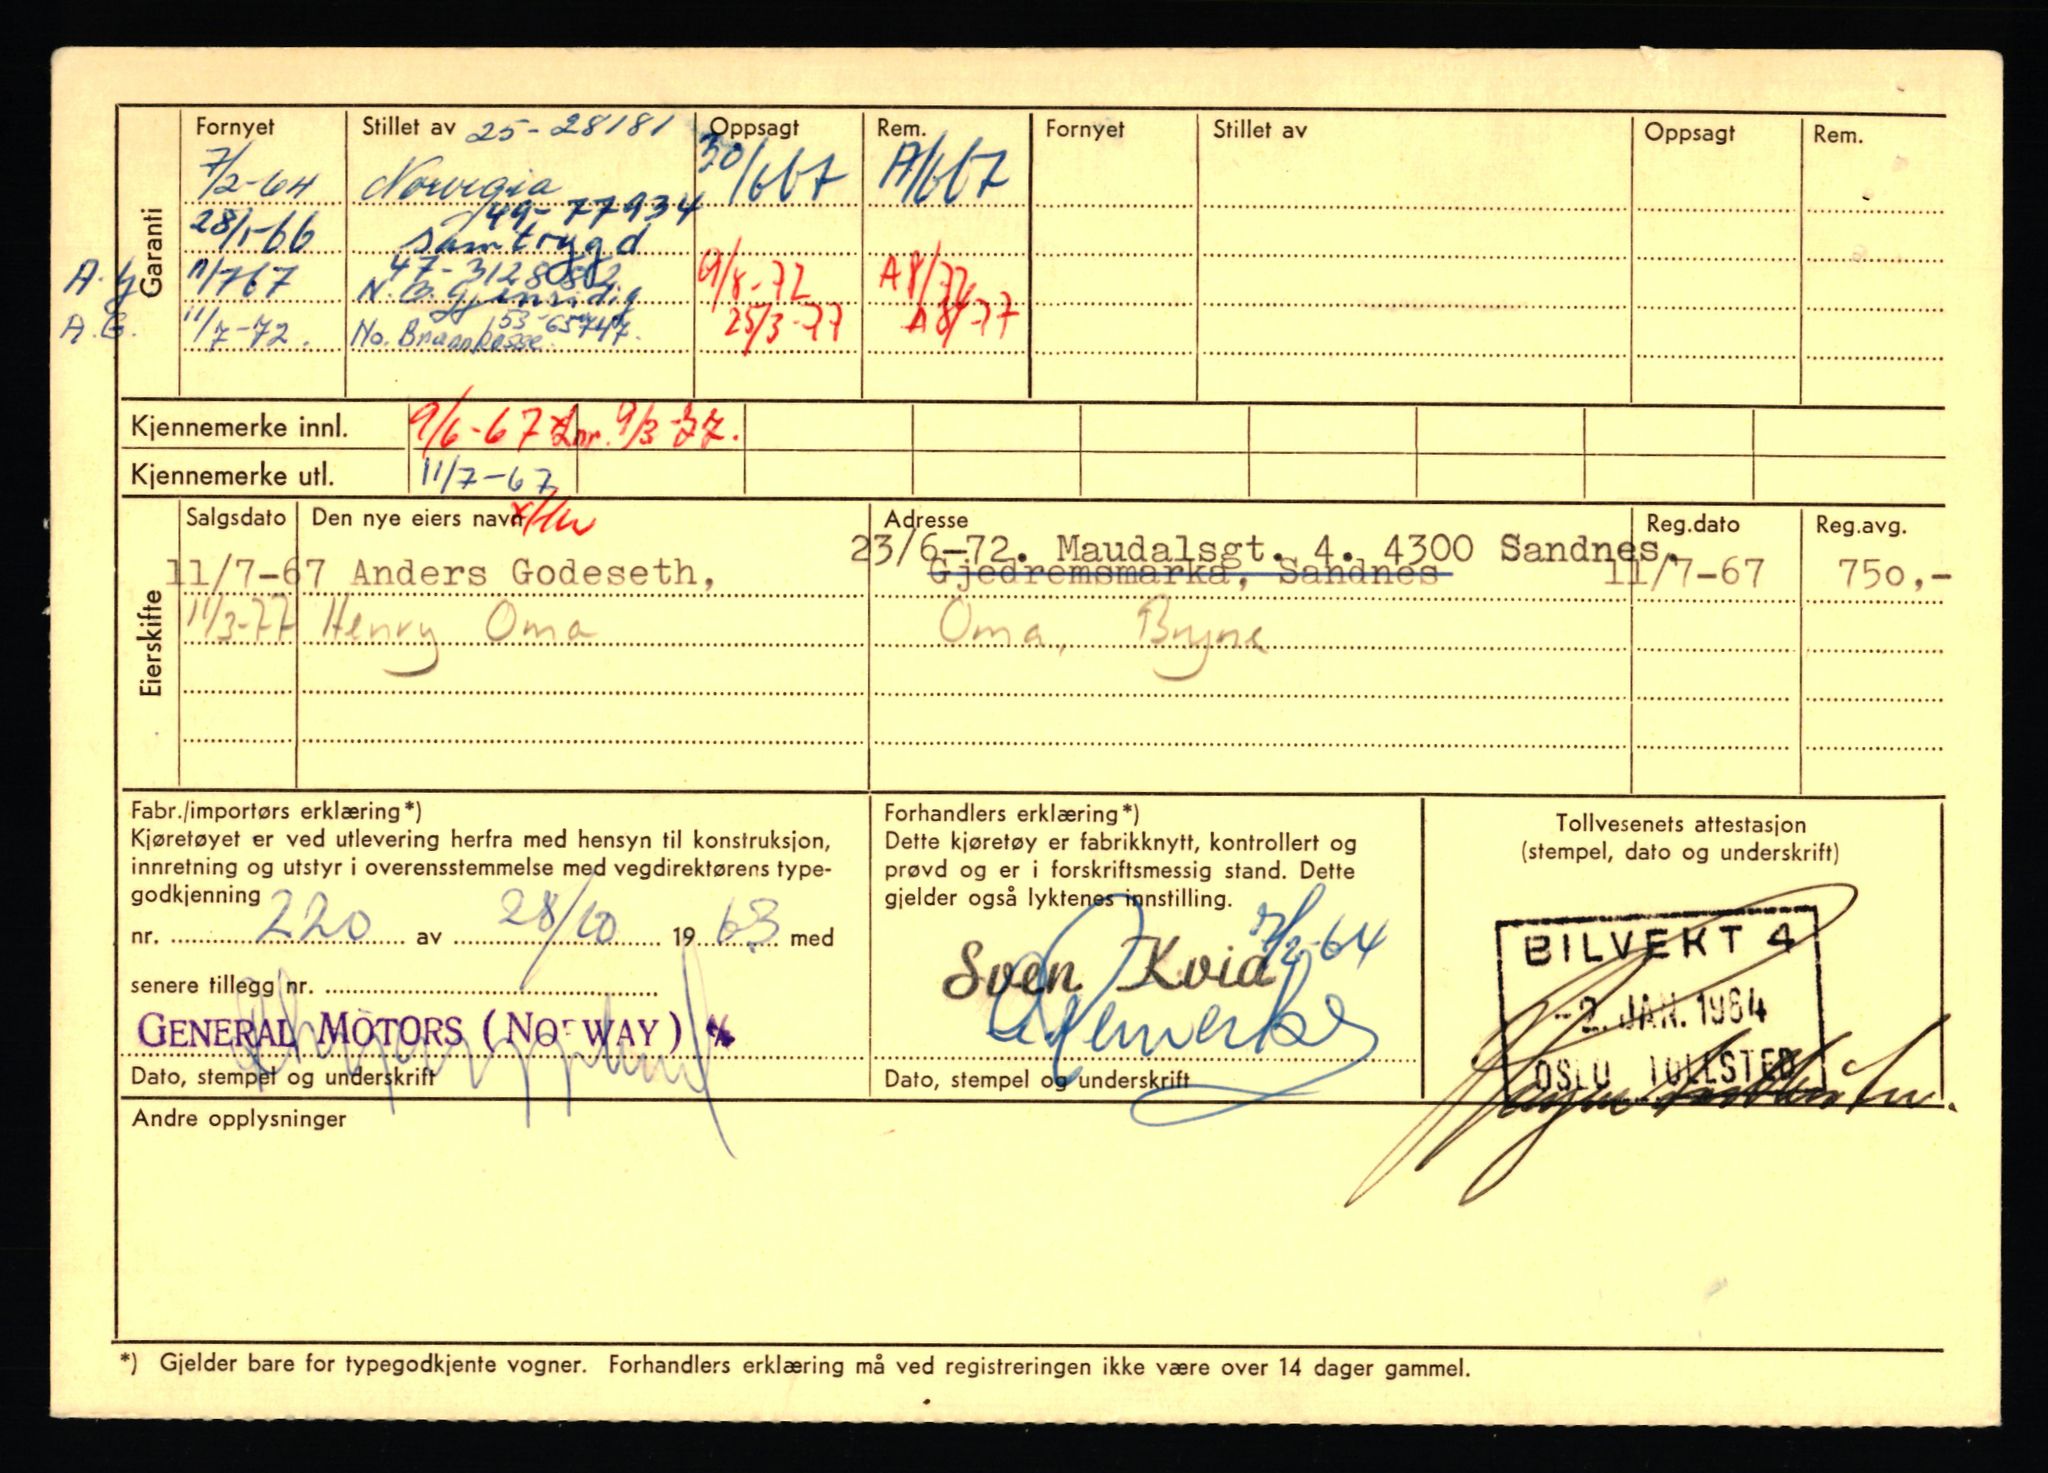 Garanti
Fornyet Stillet av 25-28181 Oppsagt Rem. Fornyet Stillet av Oppsagt Rem.
7/2-64 Norvegia 30/667 A/667
49-77934
28/1-66 Samtrygd
47-3128082
A.G 11/767 N.B. Gjensidig 9/8-72 A8/72
53-65747.
A.G. 11/7-72. No. Brannkasse. 25/3-77 A8/77
Kjennemerke innl. 9/6-67 9/3-77.
Kjennemerke utl. 11/7-67
Eierskifte
Salgsdato Den nye eiers navn Adresse Reg.dato Reg.avg.
23/6-72. Maudalsgt. 4. 4300 Sandnes.
11/7-67 Anders Godeseth, Gjedremsmarka, Sandnes 11/7-67 750,-
11/3-77 Henry Oma Oma, Bryne
Fabr./importørs erklæring*)
Kjøretøyet er ved utlevering herfra med hensyn til konstruksjon,
innretning og utstyr i overensstemmelse med vegdirektørens type-
godkjenning
nr. 220 av 28/10 1963 med
senere tillegg nr.
GENERAL MOTORS (NORWAY) A/S
Dato, stempel og underskrift
Forhandlers erklæring*)
Dette kjøretøy er fabrikknytt, kontrollert og
prøvd og er i forskriftsmessig stand. Dette
gjelder også lyktenes innstilling.
7/2-64
Sven Kvia
Dato, stempel og underskrift
Tollvesenets attestasjon
(stempel, dato og underskrift)
BILVEKT 4
-2. JAN. 1964
OSLO TOLLSTED
Andre opplysninger
*) Gjelder bare for typegodkjente vogner. Forhandlers erklæring må ved registreringen ikke være over 14 dager gammel.